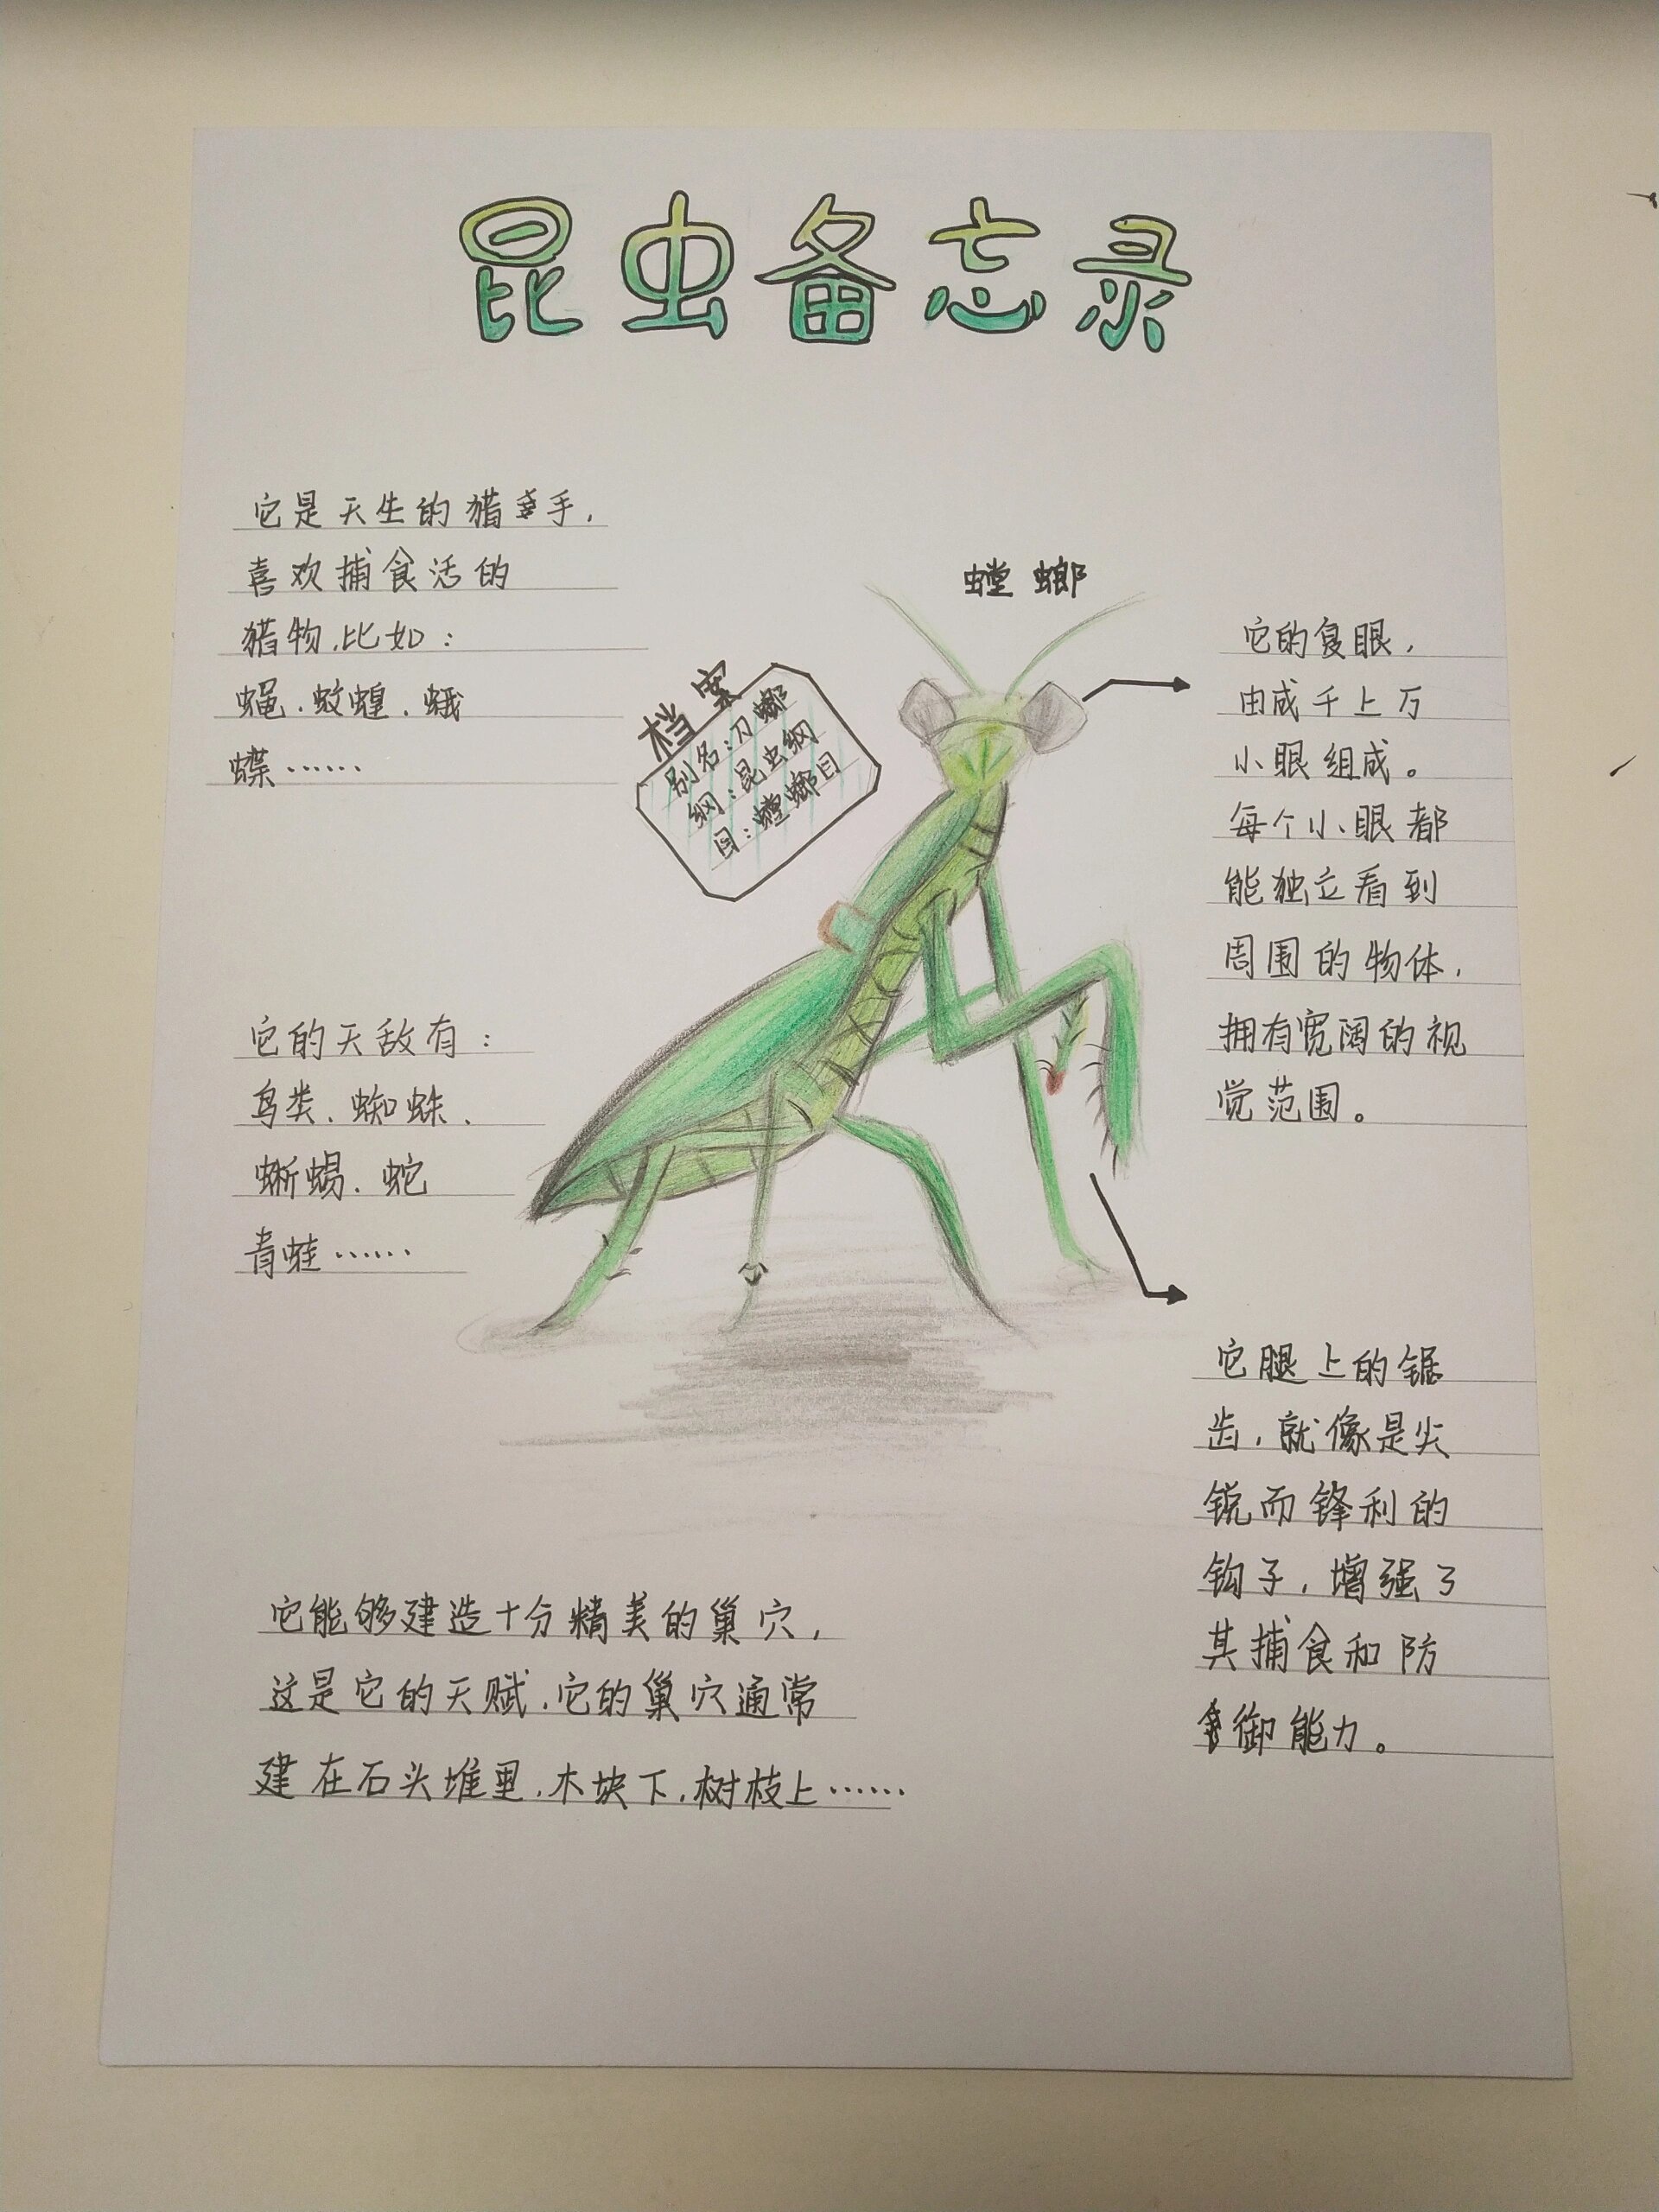 昆虫备忘录
它是天生的猎手，
喜欢捕食活的
猎物，比如：
蝇、蚊蝗、蛾
蝶……
螳螂
档案
别名：刀螂
纲：昆虫纲
目：螳螂目
它的复眼，
由成千上万
小眼组成。
每个小眼都
能独立看到
周围的物体，
拥有宽阔的视
觉范围。
它的天敌有：
鸟类、蜘蛛、
蜥蜴、蛇
青蛙……
它腿上的锯
齿，就像是尖
锐而锋利的
钩子，增强了
其捕食和防
御能力。
它能够建造十分精美的巢穴，
这是它的天赋，它的巢穴通常
建在石头堆里，木块下，树枝上……